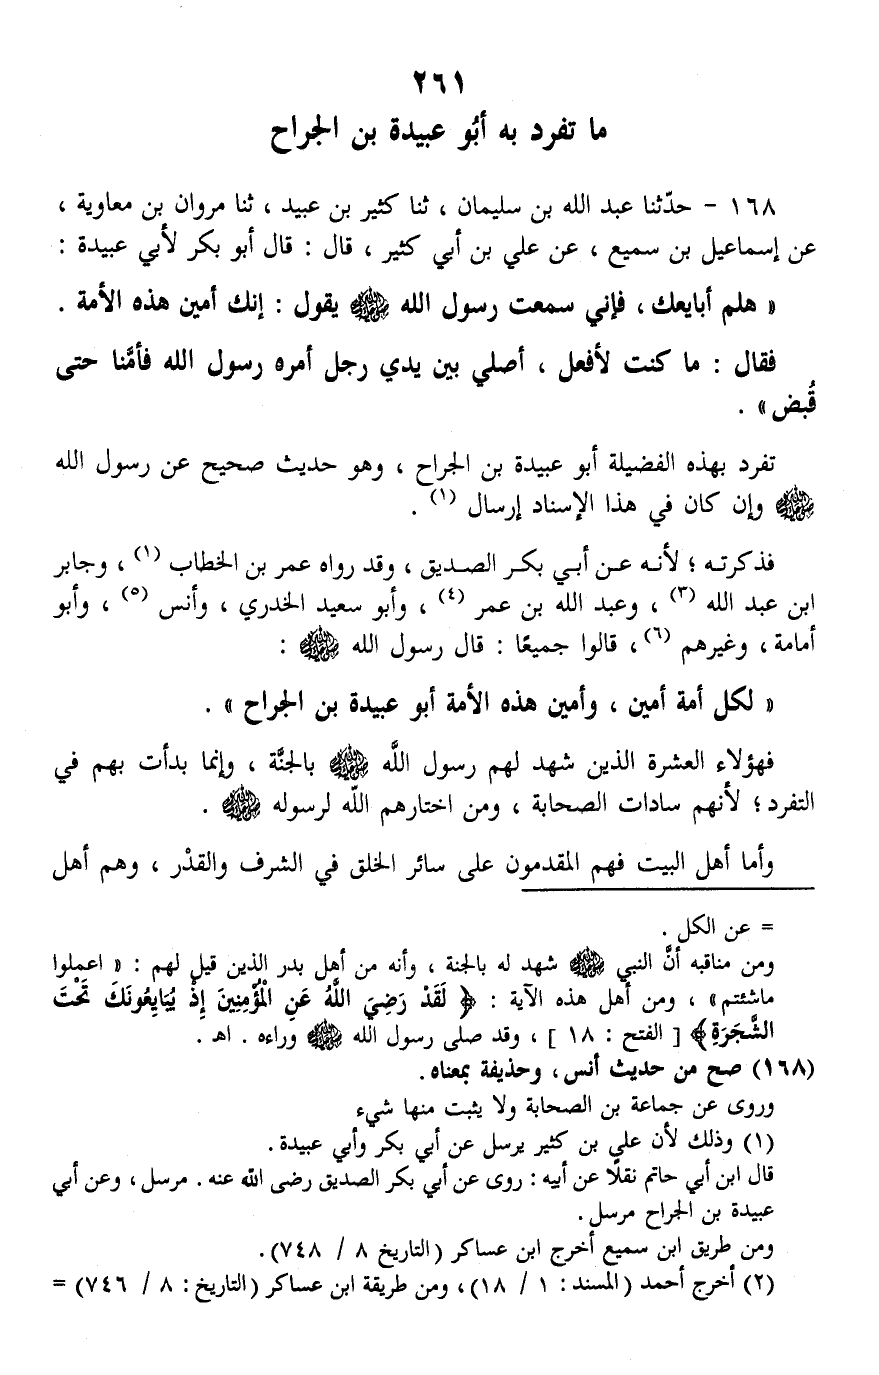 ٢٦١
ما تفرد به أبُو عبيدة بن الجراح
١٦٨ - حدّثنا عبد الله بن سليمان ، ثنا كثير بن عبيد ، ثنا مروان بن معاوية ،
عن إسماعيل بن سميع ، عن علي بن أبي كثير ، قال : قال أبو بكر لأبي عبيدة :
« هلم أبايعك ، فإني سمعت رسول الله ﷺ يقول : إنك أمين هذه الأمة .
فقال : ما كنت لأفعل ، أصلي بين يدي رجل أمره رسول الله فأمَّنا حتى
قُبض » .
تفرد بهذه الفضيلة أبو عبيدة بن الجراح ، وهو حديث صحيح عن رسول الله
ﷺ وإن كان في هذا الإسناد إرسال (١) .
فذكرته ؛ لأنه عن أبي بكر الصديق ، وقد رواه عمر بن الخطاب (١) ، وجابر
ابن عبد الله (٣) ، وعبد الله بن عمر (٤) ، وأبو سعيد الخدري ، وأنس (٥) ، وأبو
أمامة ، وغيرهم (٦) ، قالوا جميعًا : قال رسول الله ﷺ :
« لكل أمة أمين ، وأمين هذه الأمة أبو عبيدة بن الجراح » .
فهؤلاء العشرة الذين شهد لهم رسول اللَّه ﷺ بالجنَّة ، وإنما بدأت بهم في
التفرد ؛ لأنهم سادات الصحابة ، ومن اختارهم اللّه لرسوله ﷺ .
وأما أهل البيت فهم المقدمون على سائر الخلق في الشرف والقدْر ، وهم أهل
= عن الكل .
ومن مناقبه أنَّ النبي ﷺ شهد له بالجنة ، وأنه من أهل بدر الذين قيل لهم : « اعملوا
ماشئتم » ، ومن أهل هذه الآية : ﴿ لَقَدْ رَضِيَ اللَّهُ عَنِ الْمُؤْمِنِينَ إِذْ يُبَايِعُونَكَ تَحْتَ
الشَّجَرَةِ ﴾ [ الفتح : ١٨ ] ، وقد صلى رسول الله ﷺ وراءه . اهـ .
(١٦٨) صح من حديث أنس ، وحذيفة بمعناه .
وروى عن جماعة بن الصحابة ولا يثبت منها شيء
(١) وذلك لأن علي بن كثير يرسل عن أبي بكر وأبي عبيدة .
قال ابن أبي حاتم نقلًا عن أبيه : روى عن أبي بكر الصديق رضى الله عنه . مرسل ، وعن أبي
عبيدة بن الجراح مرسل .
ومن طريق ابن سميع أخرج ابن عساكر (التاريخ ٨ / ٧٤٨) .
(٢) أخرج أحمد (المسند : ١ / ١٨) ، ومن طريقة ابن عساكر (التاريخ : ٨ / ٧٤٦) =